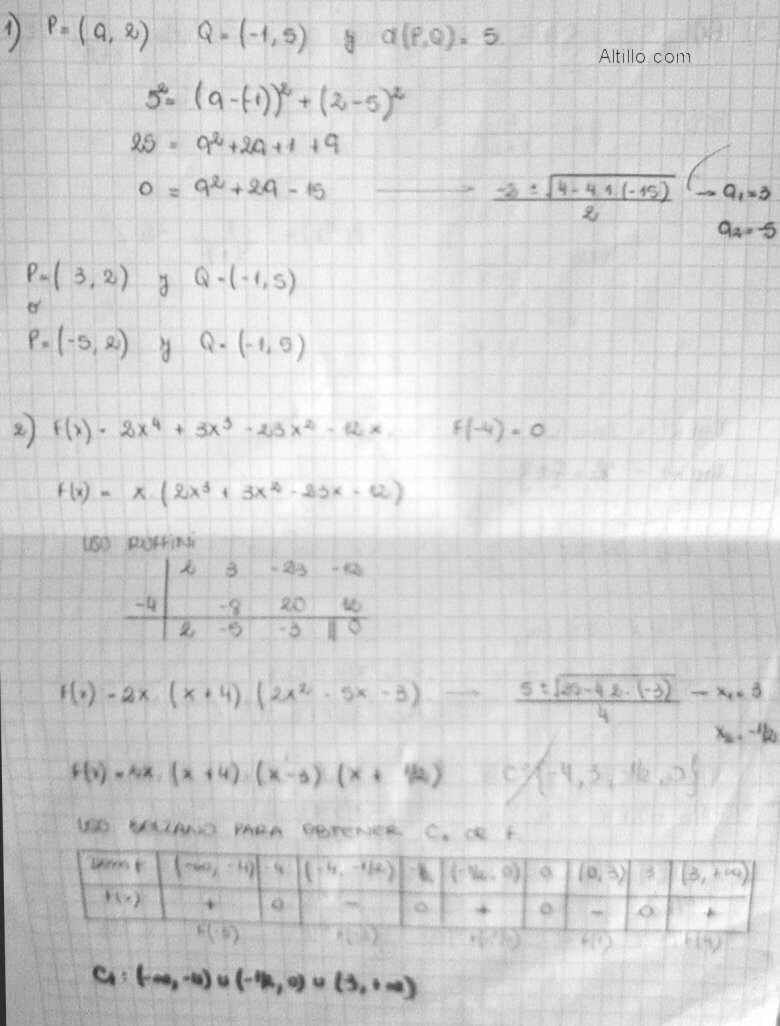 1) P=(a, 2) Q=(-1,5) y d(P,Q)=5
Altillo.com
5²= (a-(-1))²+(2-5)²
25 = a²+2a+1+9
0 = a²+2a-15 → (-2 ± √(4-4.1.(-15)))/2 → a₁=3
a₂=-5
P=(3,2) y Q=(-1,5)
o
P=(-5,2) y Q=(-1,5)
2) f(x) = 2x⁴ + 3x³ -23x² -12x f(-4)=0
f(x) = x (2x³ + 3x² -23x -12)
USO RUFFINI
2 3 -23 -12
-4 -8 20 12
2 -5 -3 0
f(x) = 2x (x+4) (2x² -5x -3) → 4 → x₁=3
x₂=-1/2
(x+4) (x-3) (x+ 1/2) C {-4, 3, -1/2, 0}
USO BOLZANO PARA OBTENER C₊ DE f
(-∞,-4) -4 (-4,-1/2) (-1/2,0) 0 (0,3) 3 (3,+∞)
f(x) + 0 - 0 + 0 - 0 +
C₊: (-∞,-4) ∪ (-1/2,0) ∪ (3,+∞)